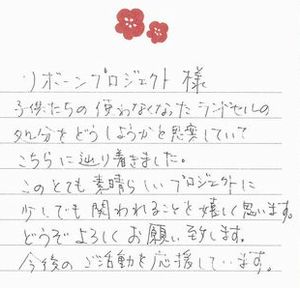 リボーンプロジェクト 様
子供たちの使わなくなったランドセルの
処分をどうしようかと思案していて
こちらに辿り着きました。
このとても素晴らしいプロジェクトに
少しでも関われることを嬉しく思います。
どうぞよろしくお願い致します。
今後のご活動を応援しています。